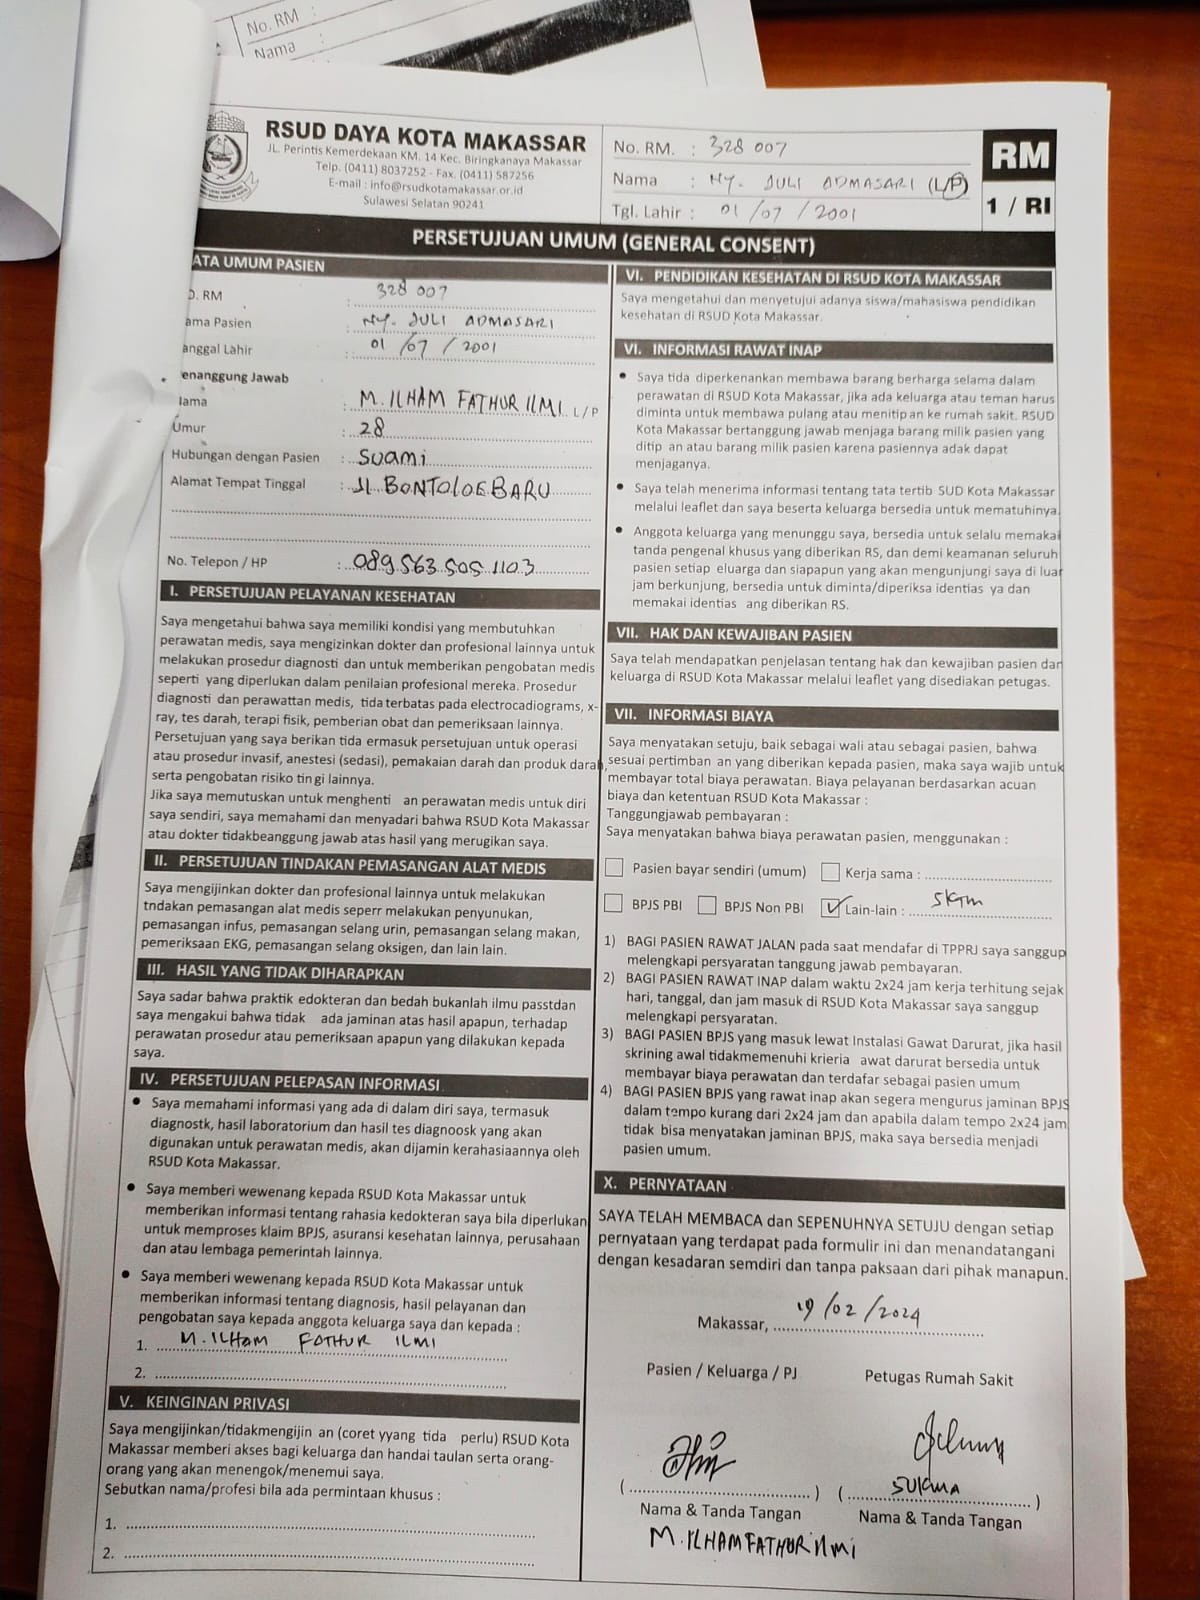 No. RM :
Nama :
RSUD DAYA KOTA MAKASSAR
JL. Perintis Kemerdekaan KM. 14 Kec. Biringkanaya Makassar
Telp. (0411) 8037252 - Fax. (0411) 587256
E-mail : info@rsudkotamakassar.or.id
Sulawesi Selatan 90241
No. RM. : 328 007
Nama : NY. JULI ADMASARI (L/P)
Tgl. Lahir : 01 / 07 / 2001
RM
1 / RI
PERSETUJUAN UMUM (GENERAL CONSENT)
ATA UMUM PASIEN
O. RM : 328 007
ama Pasien : NY. JULI ADMASARI
anggal Lahir : 01 / 07 / 2001
enanggung Jawab
Nama : M. ILHAM FATHUR ILMI L / P
Umur : 28
Hubungan dengan Pasien : Suami
Alamat Tempat Tinggal : Jl BONTOLOE BARU
No. Telepon / HP : 089 563 505 1103
I. PERSETUJUAN PELAYANAN KESEHATAN
Saya mengetahui bahwa saya memiliki kondisi yang membutuhkan
perawatan medis, saya mengizinkan dokter dan profesional lainnya untuk
melakukan prosedur diagnosti dan untuk memberikan pengobatan medis
seperti yang diperlukan dalam penilaian profesional mereka. Prosedur
diagnosti dan perawattan medis, tida terbatas pada electrocadiograms, x-
ray, tes darah, terapi fisik, pemberian obat dan pemeriksaan lainnya.
Persetujuan yang saya berikan tida ermasuk persetujuan untuk operasi
atau prosedur invasif, anestesi (sedasi), pemakaian darah dan produk darah,
serta pengobatan risiko tin gi lainnya.
Jika saya memutuskan untuk menghenti an perawatan medis untuk diri
saya sendiri, saya memahami dan menyadari bahwa RSUD Kota Makassar
atau dokter tidakbeanggung jawab atas hasil yang merugikan saya.
II. PERSETUJUAN TINDAKAN PEMASANGAN ALAT MEDIS
Saya mengijinkan dokter dan profesional lainnya untuk melakukan
tndakan pemasangan alat medis seperr melakukan penyunukan,
pemasangan infus, pemasangan selang urin, pemasangan selang makan,
pemeriksaan EKG, pemasangan selang oksigen, dan lain lain.
III. HASIL YANG TIDAK DIHARAPKAN
Saya sadar bahwa praktik edokteran dan bedah bukanlah ilmu passtdan
saya mengakui bahwa tidak ada jaminan atas hasil apapun, terhadap
perawatan prosedur atau pemeriksaan apapun yang dilakukan kepada
saya.
IV. PERSETUJUAN PELEPASAN INFORMASI
• Saya memahami informasi yang ada di dalam diri saya, termasuk
diagnostk, hasil laboratorium dan hasil tes diagnoosk yang akan
digunakan untuk perawatan medis, akan dijamin kerahasiaannya oleh
RSUD Kota Makassar.
• Saya memberi wewenang kepada RSUD Kota Makassar untuk
memberikan informasi tentang rahasia kedokteran saya bila diperlukan
untuk memproses klaim BPJS, asuransi kesehatan lainnya, perusahaan
dan atau lembaga pemerintah lainnya.
• Saya memberi wewenang kepada RSUD Kota Makassar untuk
memberikan informasi tentang diagnosis, hasil pelayanan dan
pengobatan saya kepada anggota keluarga saya dan kepada :
1. M. ILHAM FATHUR ILMI
2.
V. KEINGINAN PRIVASI
Saya mengijinkan/tidakmengijin an (coret yyang tida perlu) RSUD Kota
Makassar memberi akses bagi keluarga dan handai taulan serta orang-
orang yang akan menengok/menemui saya.
Sebutkan nama/profesi bila ada permintaan khusus :
1.
2.
VI. PENDIDIKAN KESEHATAN DI RSUD KOTA MAKASSAR
Saya mengetahui dan menyetujui adanya siswa/mahasiswa pendidikan
kesehatan di RSUD Kota Makassar.
VI. INFORMASI RAWAT INAP
• Saya tida diperkenankan membawa barang berharga selama dalam
perawatan di RSUD Kota Makassar, jika ada keluarga atau teman harus
diminta untuk membawa pulang atau menitipan ke rumah sakit. RSUD
Kota Makassar bertanggung jawab menjaga barang milik pasien yang
ditip an atau barang milik pasien karena pasiennya adak dapat
menjaganya.
• Saya telah menerima informasi tentang tata tertib SUD Kota Makassar
melalui leaflet dan saya beserta keluarga bersedia untuk mematuhinya.
• Anggota keluarga yang menunggu saya, bersedia untuk selalu memakai
tanda pengenal khusus yang diberikan RS, dan demi keamanan seluruh
pasien setiap eluarga dan siapapun yang akan mengunjungi saya di luar
jam berkunjung, bersedia untuk diminta/diperiksa identias ya dan
memakai identias ang diberikan RS.
VII. HAK DAN KEWAJIBAN PASIEN
Saya telah mendapatkan penjelasan tentang hak dan kewajiban pasien dar
keluarga di RSUD Kota Makassar melalui leaflet yang disediakan petugas.
VII. INFORMASI BIAYA
Saya menyatakan setuju, baik sebagai wali atau sebagai pasien, bahwa
sesuai pertimban an yang diberikan kepada pasien, maka saya wajib untuk
membayar total biaya perawatan. Biaya pelayanan berdasarkan acuan
biaya dan ketentuan RSUD Kota Makassar :
Tanggungjawab pembayaran :
Saya menyatakan bahwa biaya perawatan pasien, menggunakan :
Pasien bayar sendiri (umum) Kerja sama :
BPJS PBI BPJS Non PBI Lain-lain : SKTM
1) BAGI PASIEN RAWAT JALAN pada saat mendafar di TPPRJ saya sanggup
melengkapi persyaratan tanggung jawab pembayaran.
2) BAGI PASIEN RAWAT INAP dalam waktu 2x24 jam kerja terhitung sejak
hari, tanggal, dan jam masuk di RSUD Kota Makassar saya sanggup
melengkapi persyaratan.
3) BAGI PASIEN BPJS yang masuk lewat Instalasi Gawat Darurat, jika hasil
skrining awal tidakmemenuhi krieria awat darurat bersedia untuk
membayar biaya perawatan dan terdafar sebagai pasien umum
4) BAGI PASIEN BPJS yang rawat inap akan segera mengurus jaminan BPJS
dalam tempo kurang dari 2x24 jam dan apabila dalam tempo 2x24 jam
tidak bisa menyatakan jaminan BPJS, maka saya bersedia menjadi
pasien umum.
X. PERNYATAAN
SAYA TELAH MEMBACA dan SEPENUHNYA SETUJU dengan setiap
pernyataan yang terdapat pada formulir ini dan menandatangani
dengan kesadaran semdiri dan tanpa paksaan dari pihak manapun.
Makassar, 19 / 02 / 2024
Pasien / Keluarga / PJ Petugas Rumah Sakit
( ) ( SUKMA )
Nama & Tanda Tangan Nama & Tanda Tangan
M. ILHAM FATHUR ILMI